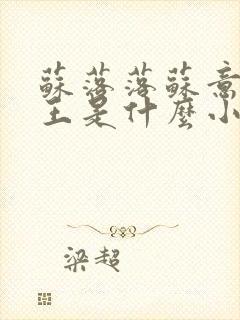 蘇落落蘇意
主是什麼小
梁超